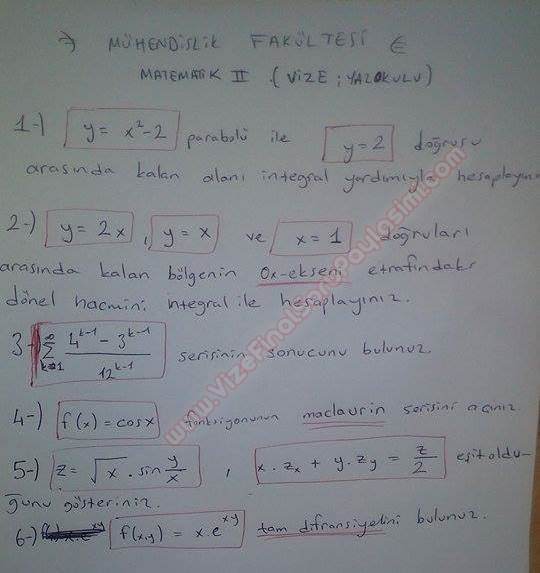 → MÜHENDİSLİK FAKÜLTESİ ∈
MATEMATİK II (VİZE; YAZOKULU)
1-) y = x²-2 parabolü ile y=2 doğrusu
arasında kalan alanı integral yardımıyla hesaplayınız
2-) y=2x, y=x ve x=1 doğruları
arasında kalan bölgenin Ox-ekseni etrafındaki
dönel hacmini integral ile hesaplayınız.
3-) ∞∑k=1 (4^(k-1) - 3^(k-1)) / 12^(k-1) serisinin sonucunu bulunuz.
4-) f(x)=cosx fonksiyonunun maclaurin serisini açınız.
5-) z=√x.sin y/x , x.zx + y.zy = z/2 eşit oldu-
ğunu gösteriniz.
6-) f(x,y) = x.e^xy tam difransiyelini bulunuz.
www.VizeFinalSoruPaylasimi.com